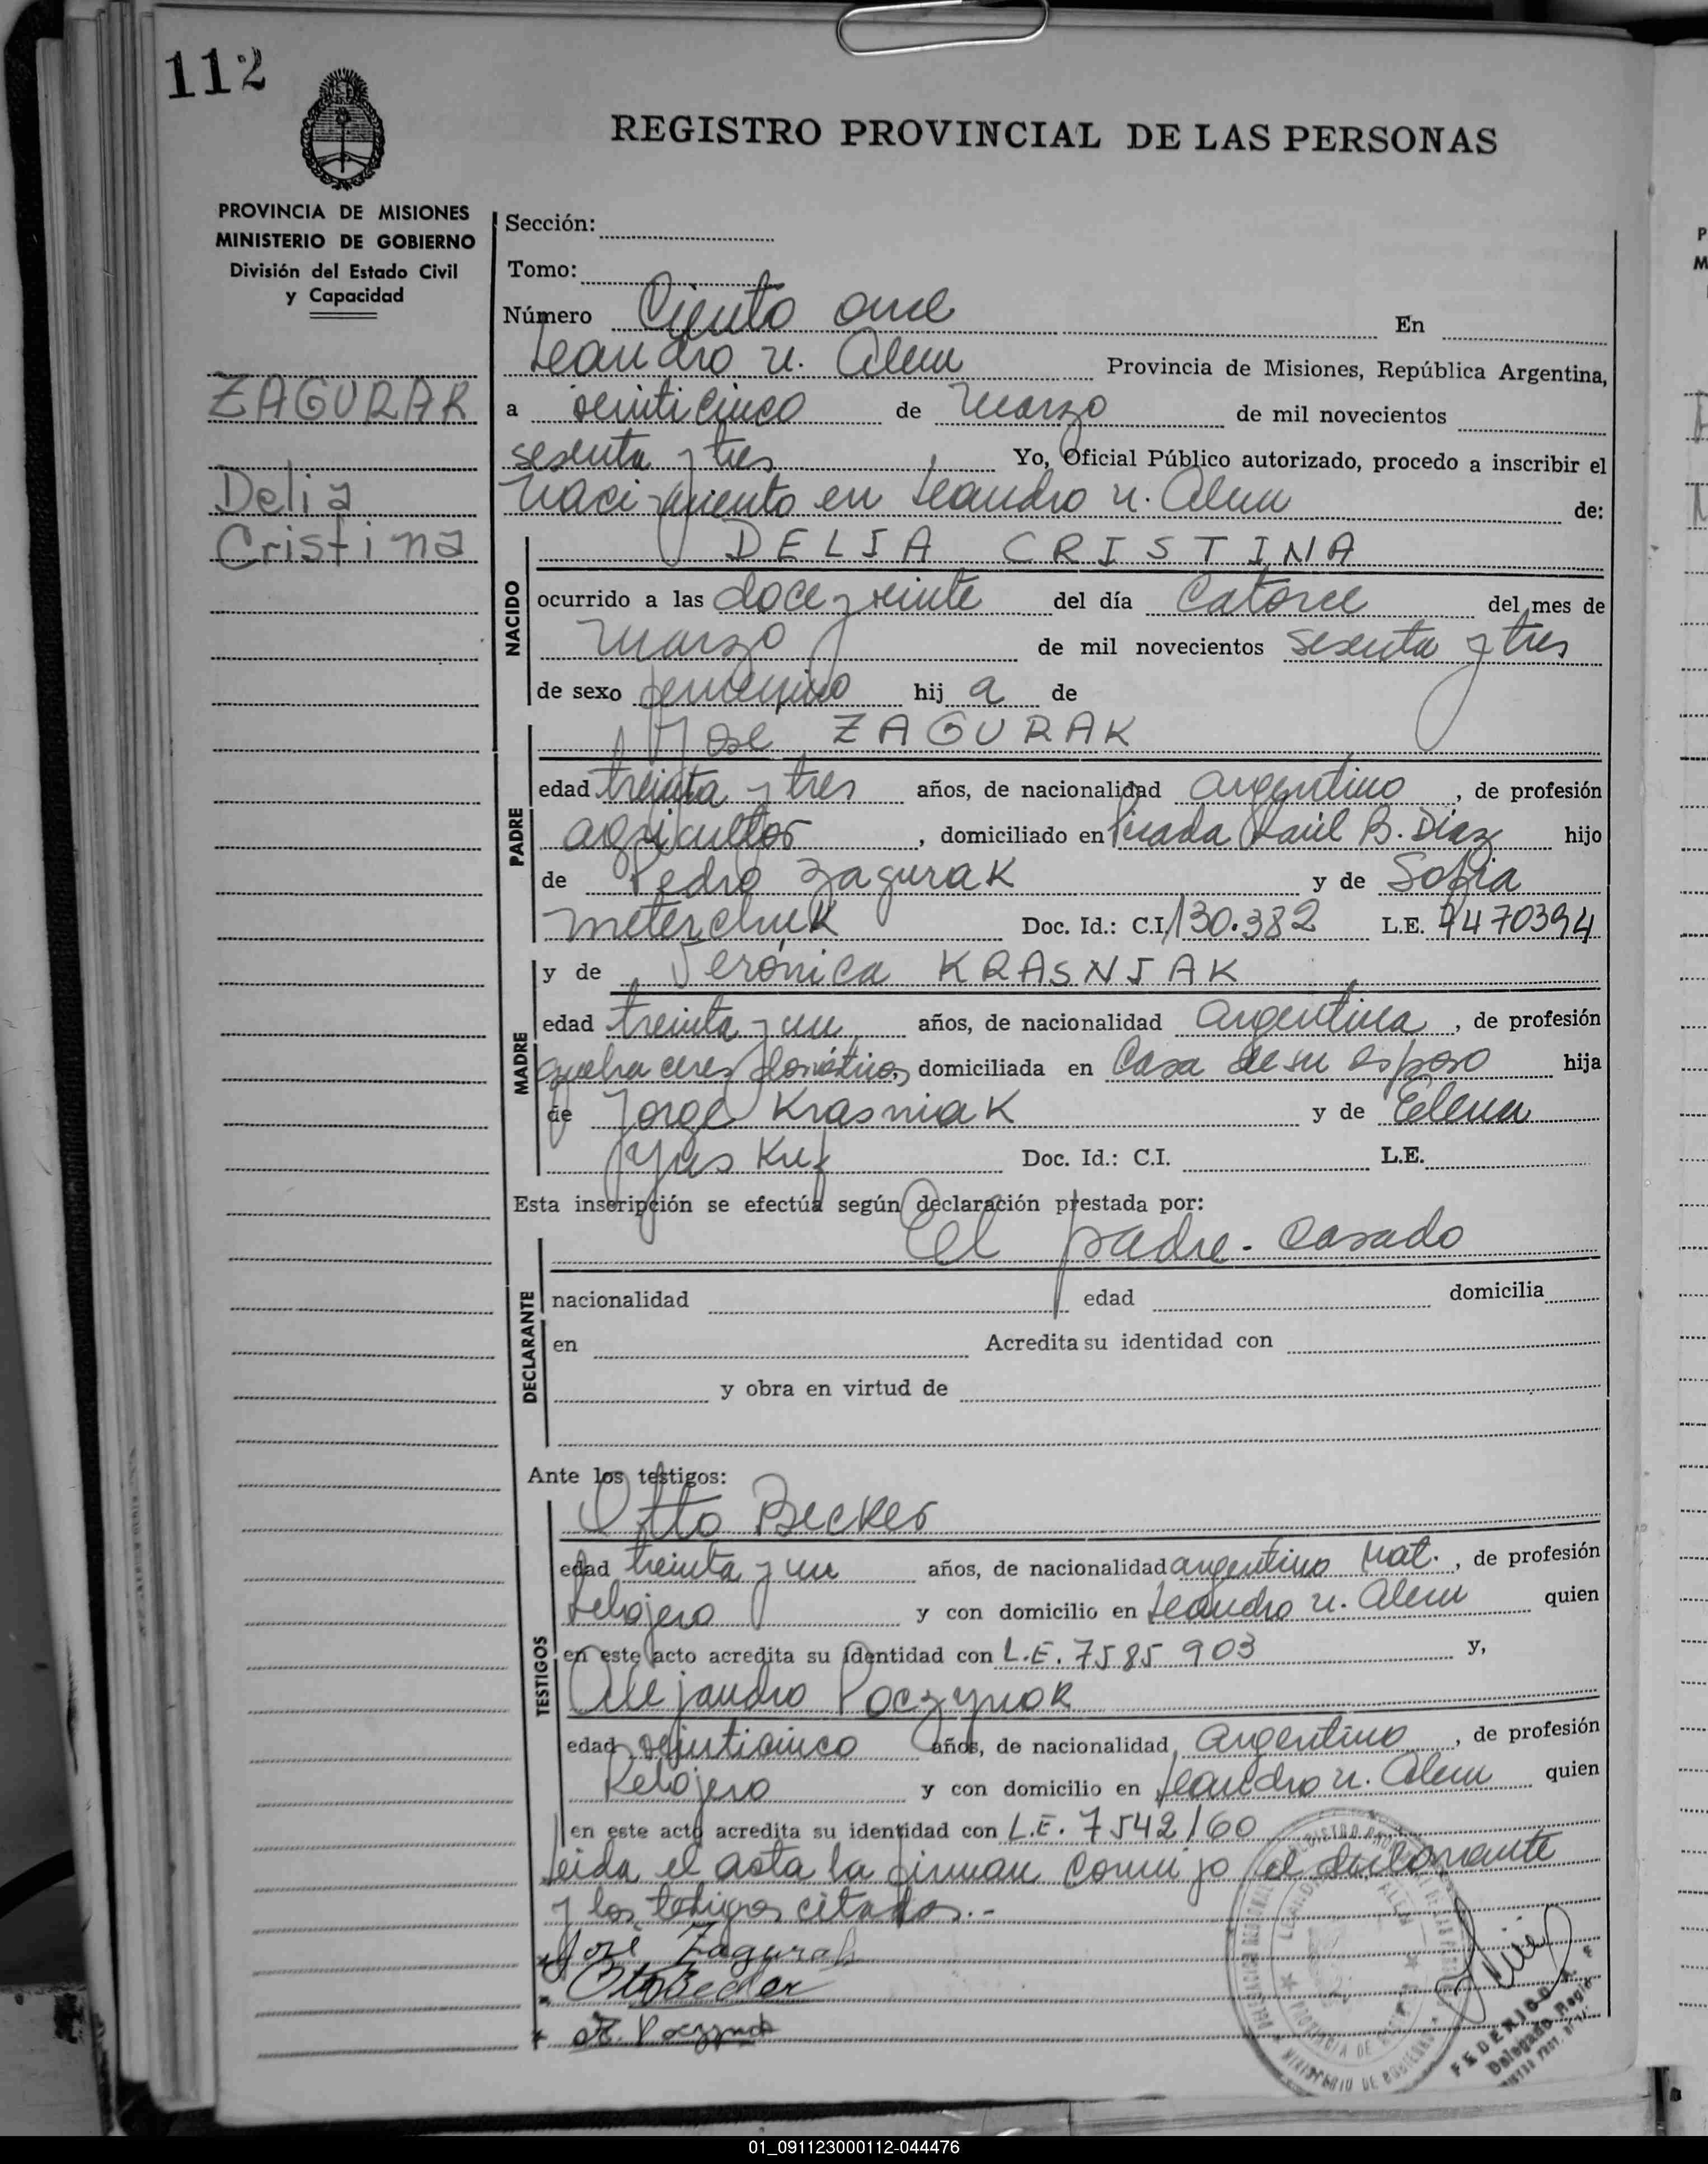 112
REGISTRO PROVINCIAL DE LAS PERSONAS
PROVINCIA DE MISIONES
MINISTERIO DE GOBIERNO
División del Estado Civil
y Capacidad
ZAGURAK
Delia
Cristina
Sección:
Tomo:
Número Ciento once En
Leandro N. Alem Provincia de Misiones, República Argentina,
a veinticinco de Marzo de mil novecientos
sesenta y tres Yo, Oficial Público autorizado, procedo a inscribir el
nacimiento en Leandro N. Alem de:
NACIDO
DELIA CRISTINA
ocurrido a las doce y veinte del día Catorce del mes de
Marzo de mil novecientos sesenta y tres
de sexo femenino hij a de
PADRE
José ZAGURAK
edad treinta y tres años, de nacionalidad argentino, de profesión
agricultor, domiciliado en Picada Raúl B. Díaz hijo
de Pedro Zagurak y de Sofia
Meterchuk Doc. Id.: C.I. 130.382 L.E. 7470394
MADRE
y de Verónica KRASNIAK
edad treinta y un años, de nacionalidad argentina, de profesión
quehaceres domésticos, domiciliada en Casa de su esposo hija
de Jorge Krasniak y de Elena
Doc. Id.: C.I. L.E.
Esta inscripción se efectúa según declaración prestada por:
DECLARANTE
El padre - casado
nacionalidad edad domicilia
en Acredita su identidad con
y obra en virtud de
Ante los testigos:
TESTIGOS
Otto Becker
edad treinta y un años, de nacionalidad argentino Nat., de profesión
Relojero y con domicilio en Leandro N. Alem quien
en este acto acredita su identidad con L.E. 7585903 y,
Alejandro Poczynok
edad veinticinco años, de nacionalidad argentino, de profesión
Relojero y con domicilio en Leandro N. Alem quien
en este acto acredita su identidad con L.E. 7542160
Leida el acta la firman conmigo el declarante
y los testigos citados.-
José Zagurak
Otto Becker
A. Poczynok
FEDERICO A.
Delegado Regio
01_091123000112-044476